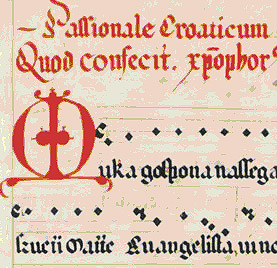 Passionale Croaticum
Quod consecit. xp̄ophor
Muka gospona nassega
Evangelista